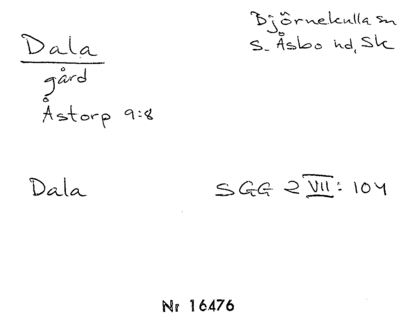 Björnekulla sn
S. Åsbo hd, Sk
Dala
gård
Åstorp 9:8
Dala SGG 2 VII: 104
Nr 16476